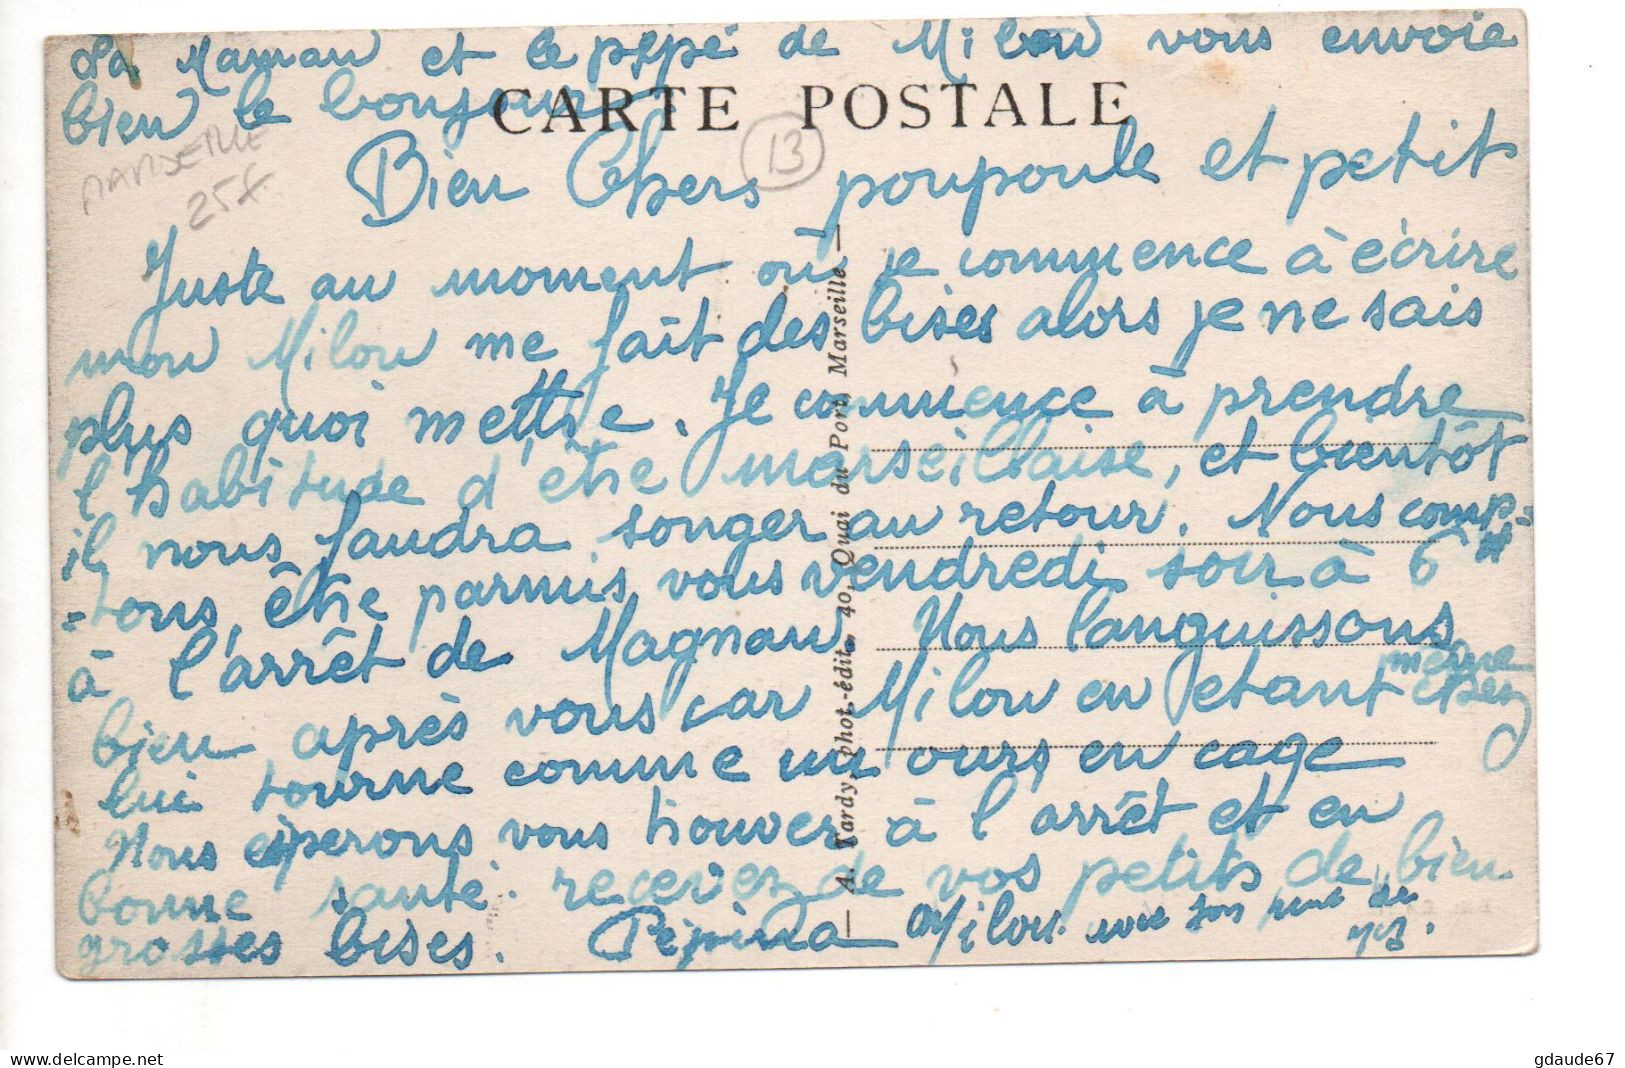 La Maman et le pépé de Milou vous envoie
bien le bonjour
CARTE POSTALE
MARSEILLE
25F
13
Bien Chers poupoule et petit
Juste au moment où je commence à écrire
mon Milou me fait des bises alors je ne sais
plus quoi mettre. Je commence à prendre
l'habitude d'être marseillaise, et bientôt
il nous faudra songer au retour. Nous comp-
-tons, être parmis vous vendredi soir à 6 H
à l'arrêt de Magnan. Nous languissons
bien après vous car Milou en etant même chez
lui tourne comme un ours en cage
Nous esperons vous trouver à l'arrêt et en
bonne santé. recevez de vos petits de bien
grosses bises. Pépina Milou avec son
A. Tardy, phot.-édit., 40, Quai du Port, Marseille
www.delcampe.net
gdaude67